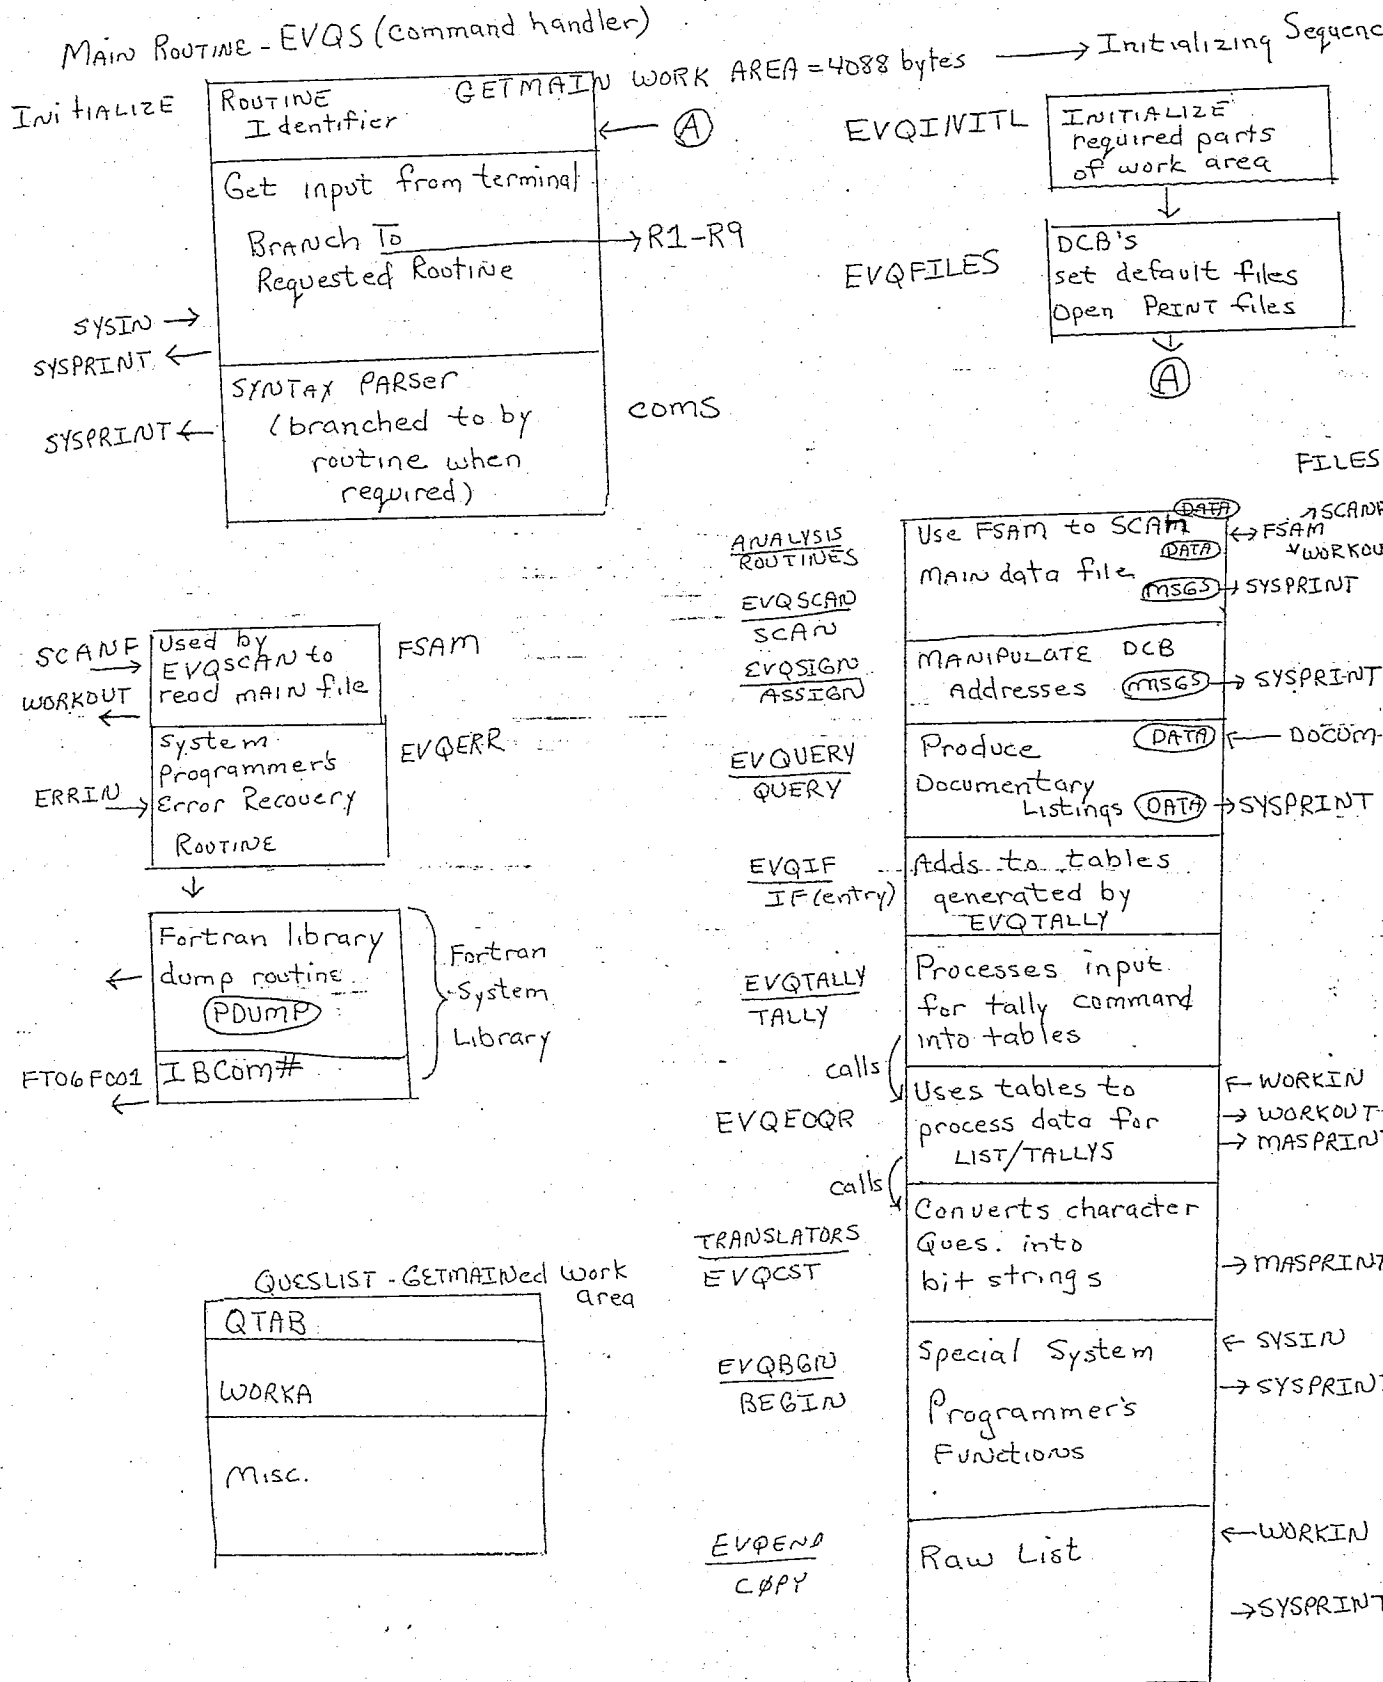 MAIN ROUTINE - EVQS (command handler)
GETMAIN WORK AREA = 4088 bytes
Initializing Sequenc
INITIALIZE
ROUTINE
Identifier
A
Get input from terminal
BRANCH To
Requested Routine
R1-R9
SYSIN
SYSPRINT
SYNTAX PARSER
(branched to by
routine when
required)
SYSPRINT
COMS
EVQINITL
INITIALIZE
required parts
of work area
EVQFILES
DCB's
set default files
Open PRINT files
A
SCANF
WORKOUT
Used by
EVQSCAN to
read MAIN file
FSAM
ERRIN
System
Programmer's
Error Recovery
ROUTINE
EVQERR
Fortran library
dump routine
PDUMP
FT06F001
IBCom#
Fortran
System
Library
QUESLIST - GETMAINed work
area
QTAB
WORKA
MISC.
FILES
ANALYSIS
ROUTINES
EVQSCAN
SCAN
Use FSAM to SCAM
MAIN data file
DATA
DATA
MSGS
SCANF
FSAM
WORKOU
SYSPRINT
EVQSIGN
ASSIGN
MANIPULATE DCB
Addresses
MSGS
SYSPRINT
EVQUERY
QUERY
Produce
Documentary
Listings
DATA
DATA
DOCUM-
SYSPRINT
EVQIF
IF (entry)
Adds to tables
generated by
EVQTALLY
EVQTALLY
TALLY
Processes input
for tally command
into tables
calls
EVQEOQR
Uses tables to
process data for
LIST/TALLYS
WORKIN
WORKOUT
MASPRINT
calls
TRANSLATORS
EVQCST
Converts character
Ques. into
bit strings
MASPRINT
EVQBGN
BEGIN
Special System
Programmer's
Functions
SYSIN
SYSPRINT
EVQEND
CØPY
Raw List
WORKIN
SYSPRINT